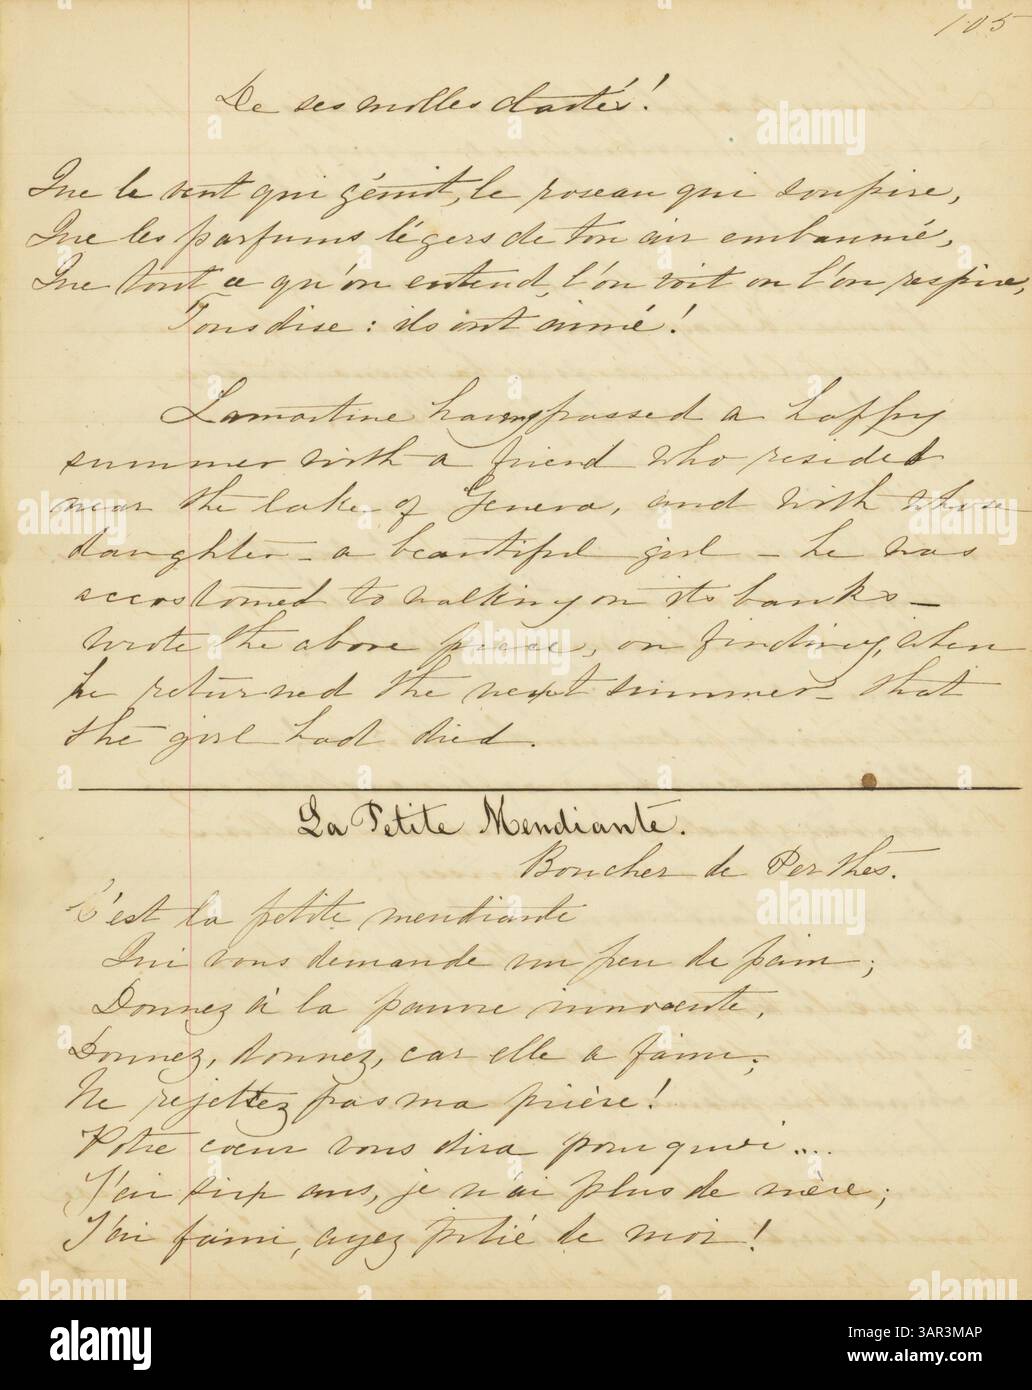 105
De ses molles clartés!
Que le vent qui gémit, le roseau qui soupire,
Que les parfums légers de ton air embaumé,
Que tout ce qu'on entend, l'on voit ou l'on respire,
Tous dise: ils ont aimé!
Lamartine having passed a happy
summer with a friend who resided
near the lake of Geneva, and with whose
daughter - a beautiful girl - he was
accustomed to walking on its banks -
wrote the above piece, on finding, when
he returned the next summer - that
the girl had died.
La Petite Mendiante.
Boucher de Perthes.
C'est la petite mendiante
Qui vous demande un peu de pain;
Donnez à la pauvre innocente,
Donnez, donnez, car elle a faim;
Ne rejettez pas ma prière!
Votre cœur vous dira pourquoi....
J'ai six ans, je n'ai plus de mère;
J'ai faim, ayez pitié de moi!
alamy
Image ID: 2AR3MAP
www.alamy.com